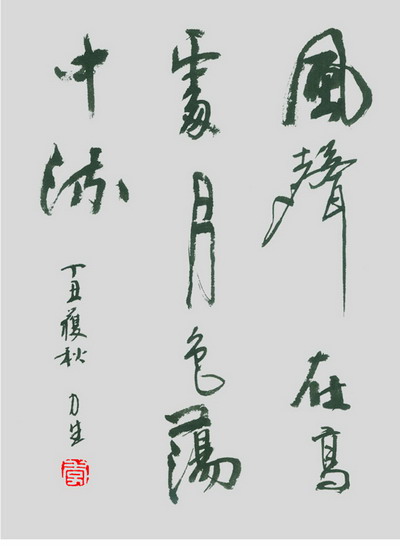 風聲在高
處月色蕩
中流
丁丑秋
生